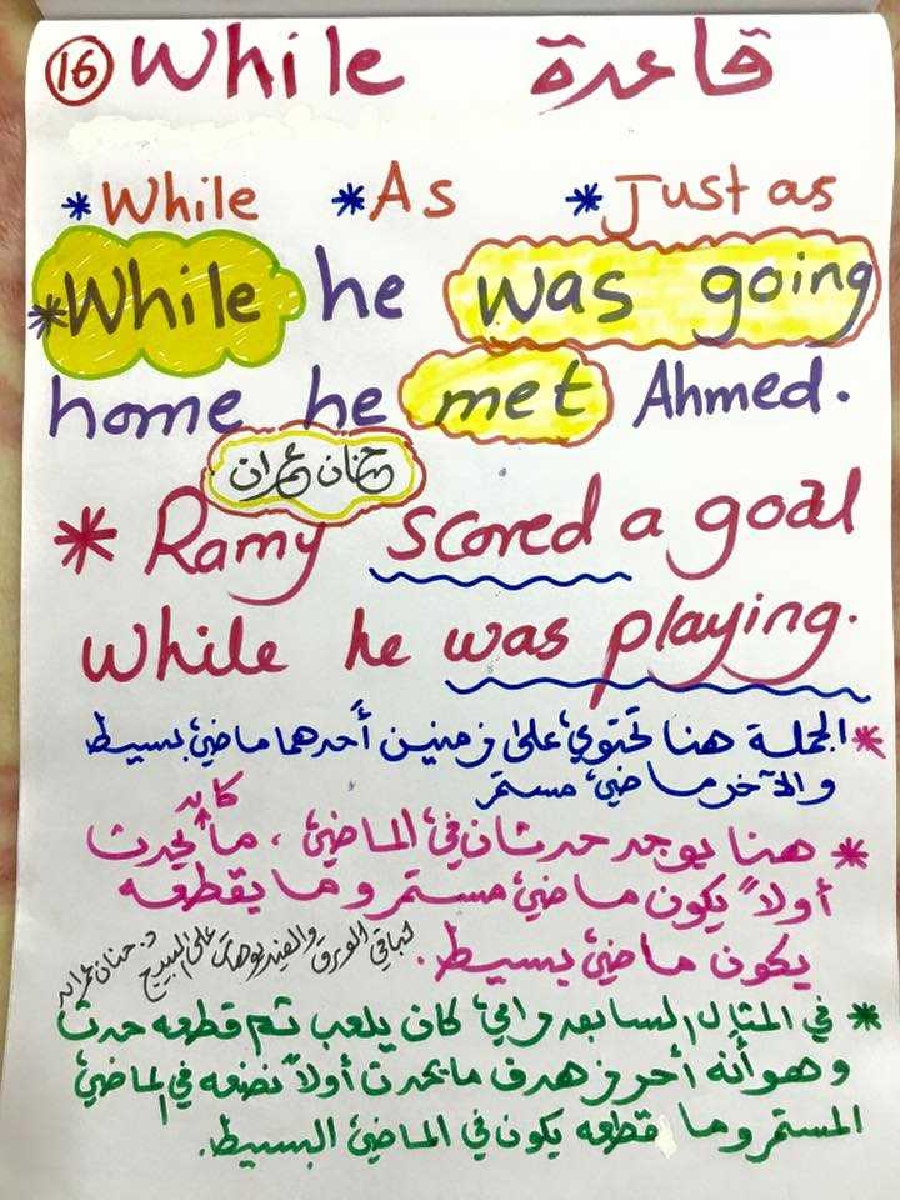 16 While قاعدة
* While * As * Just as
* While he was going
home he met Ahmed.
حنان عمران
* Ramy scored a goal
while he was playing.
* الجملة هنا تحتوي على زمنين أحدهما ماضي بسيط
والآخر ماضي مستمر
كان
* هنا يوجد حدثان في الماضي ، ما يحدث
أولاً يكون ماضي مستمر وما يقطعه
يكون ماضي بسيط.
لباقي الورق والفيديوهات على البيدج د. حنان عمران
* في المثال السابق رامي كان يلعب ثم قطعه حدث
وهو أنه أحرز هدف ما يحدث أولاً نضعه في الماضي
المستمر وما قطعه يكون في الماضي البسيط.